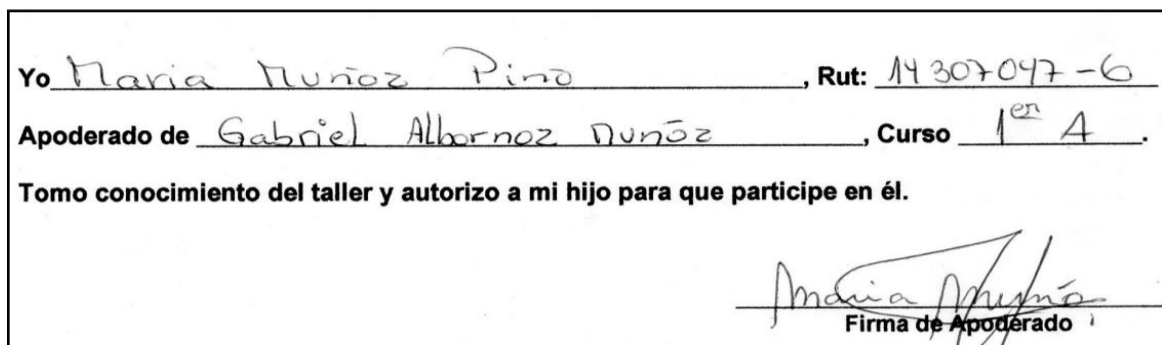 Yo Maria Muñoz Pino, Rut: 14307047-6
Apoderado de Gabriel Albornoz Muñoz, Curso 1er A.
Tomo conocimiento del taller y autorizo a mi hijo para que participe en él.
Maria Muñoz
Firma de Apoderado